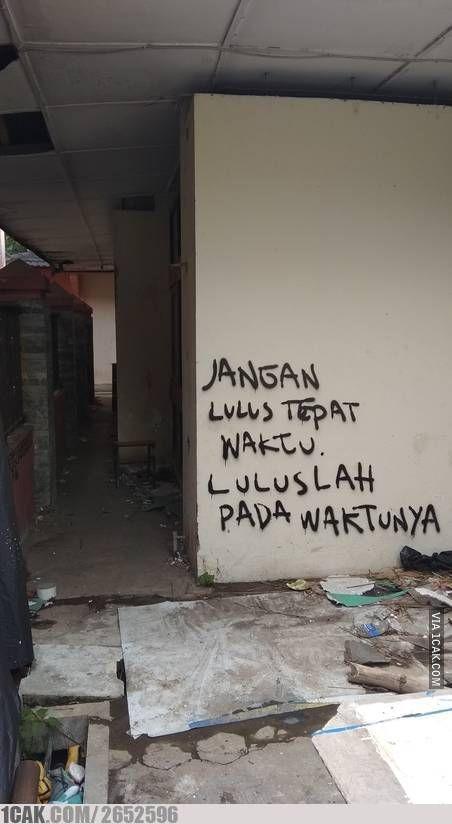 JANGAN
LULUS TEPAT
WAKTU.
LULUSLAH
PADA WAKTUNYA
VIA 1CAK.COM
1CAK.COM/2652596